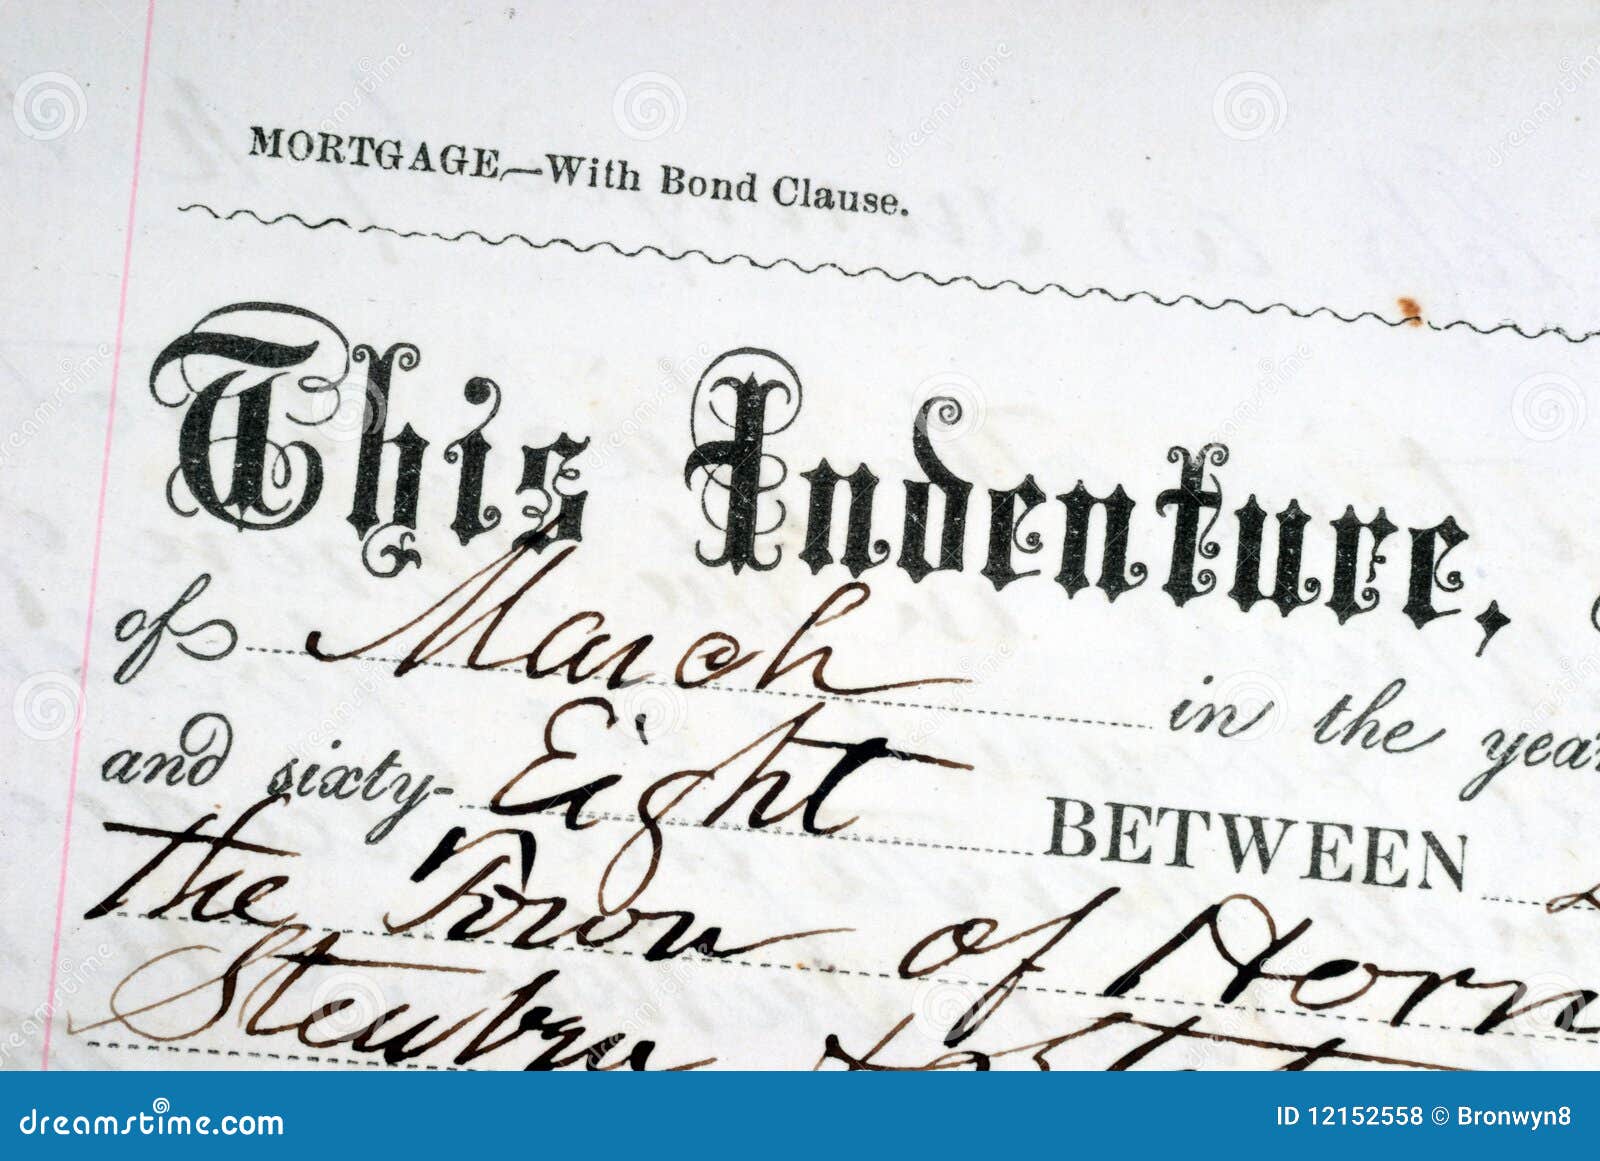 MORTGAGE,—With Bond Clause.
This Indenture,
of March in the year
and sixty- Eight BETWEEN
the Town of Horn
Steuben
dreamstime.com
ID 12152558 © Bronwyn8